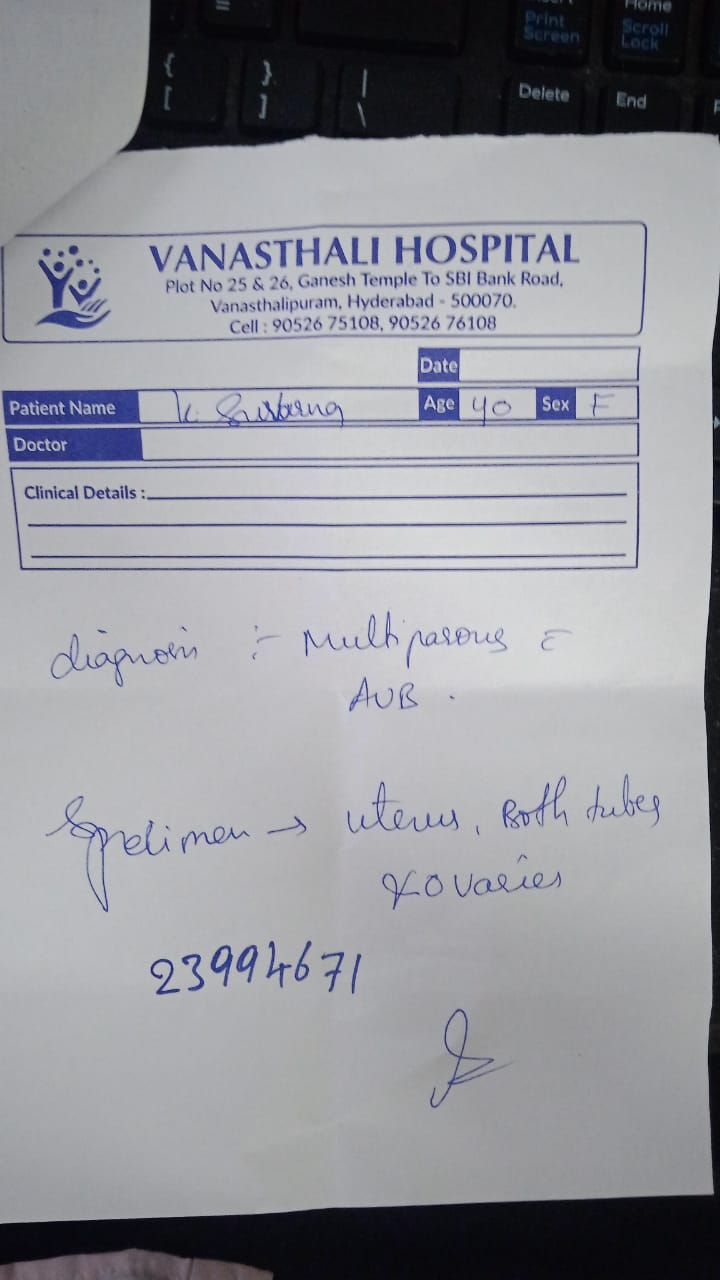 =
Home
Print
Screen
Scroll
Lock
{
[
}
]
|
\
Delete
End
VANASTHALI HOSPITAL
Plot No 25 & 26, Ganesh Temple To SBI Bank Road,
Vanasthalipuram, Hyderabad - 500070.
Cell : 90526 75108, 90526 76108
Date
Patient Name K. Age 40 Sex F
Doctor
Clinical Details :
diagnosis :- Multiparous c̅
AUB .
Specimen → uterus, Both tubes
& ovaries
23994671